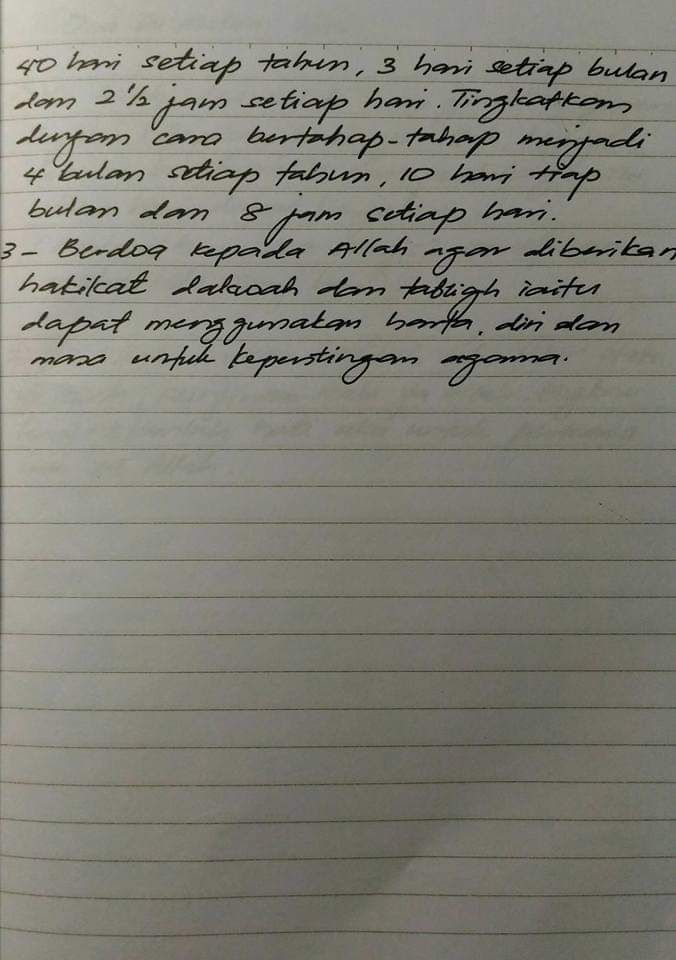 40 hari setiap tahun, 3 hari setiap bulan
dan 2 1/2 jam setiap hari. Tingkatkan
dengan cara bertahap-tahap menjadi
4 bulan setiap tahun, 10 hari tiap
bulan dan 8 jam setiap hari.
3- Berdoa kepada Allah agar diberikan
hakikat dakwah dan tabligh iaitu
dapat menggunakan harta, diri dan
masa untuk kepentingan agama.